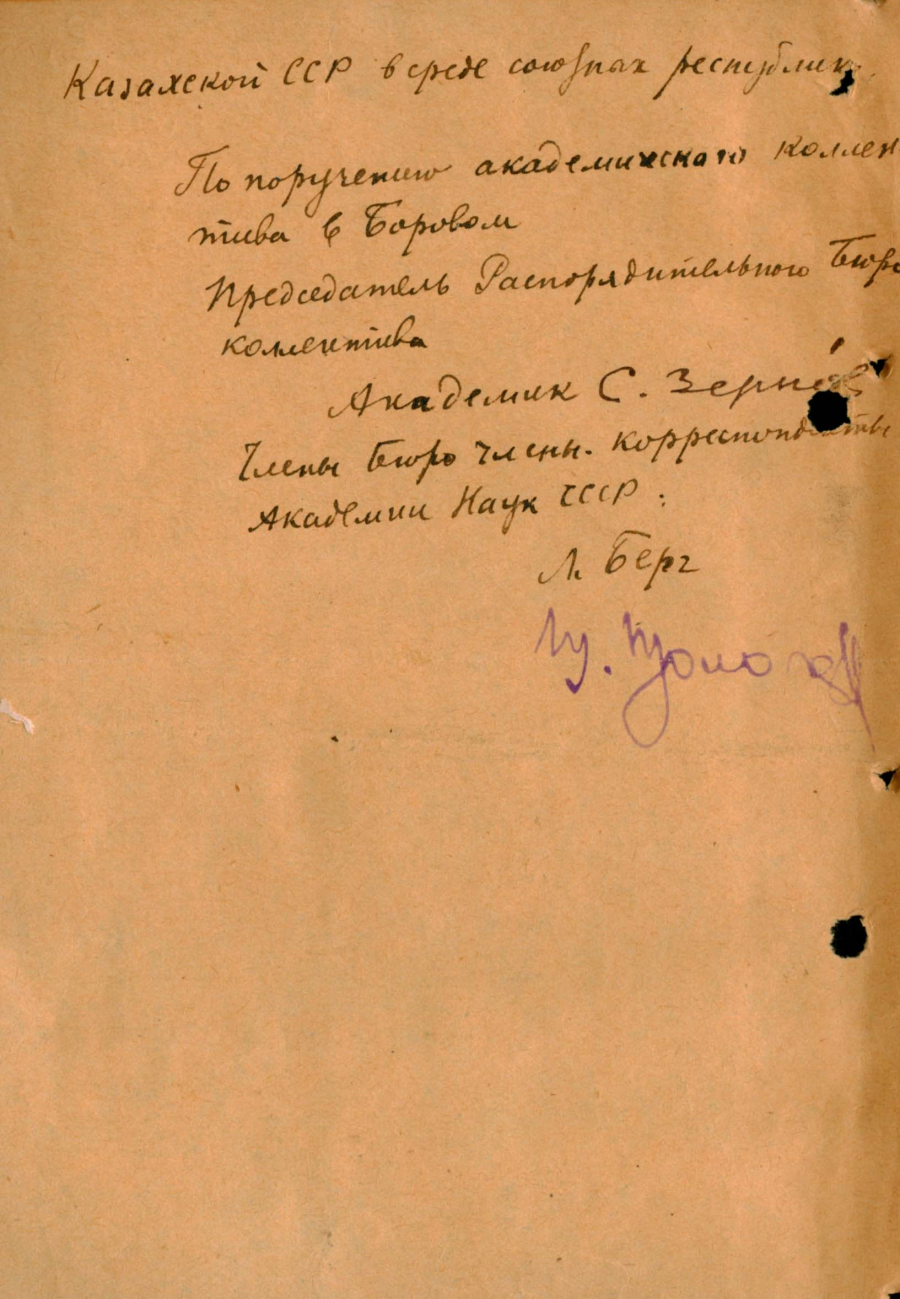 Казахской ССР в среде союзных республик.
По поручению академического коллек
тива в Боровом
Председатель Распорядительного Бюро
коллектива
Академик С. Зернов
Члены Бюро члены-корреспонденты
Академии Наук СССР:
Л. Берг